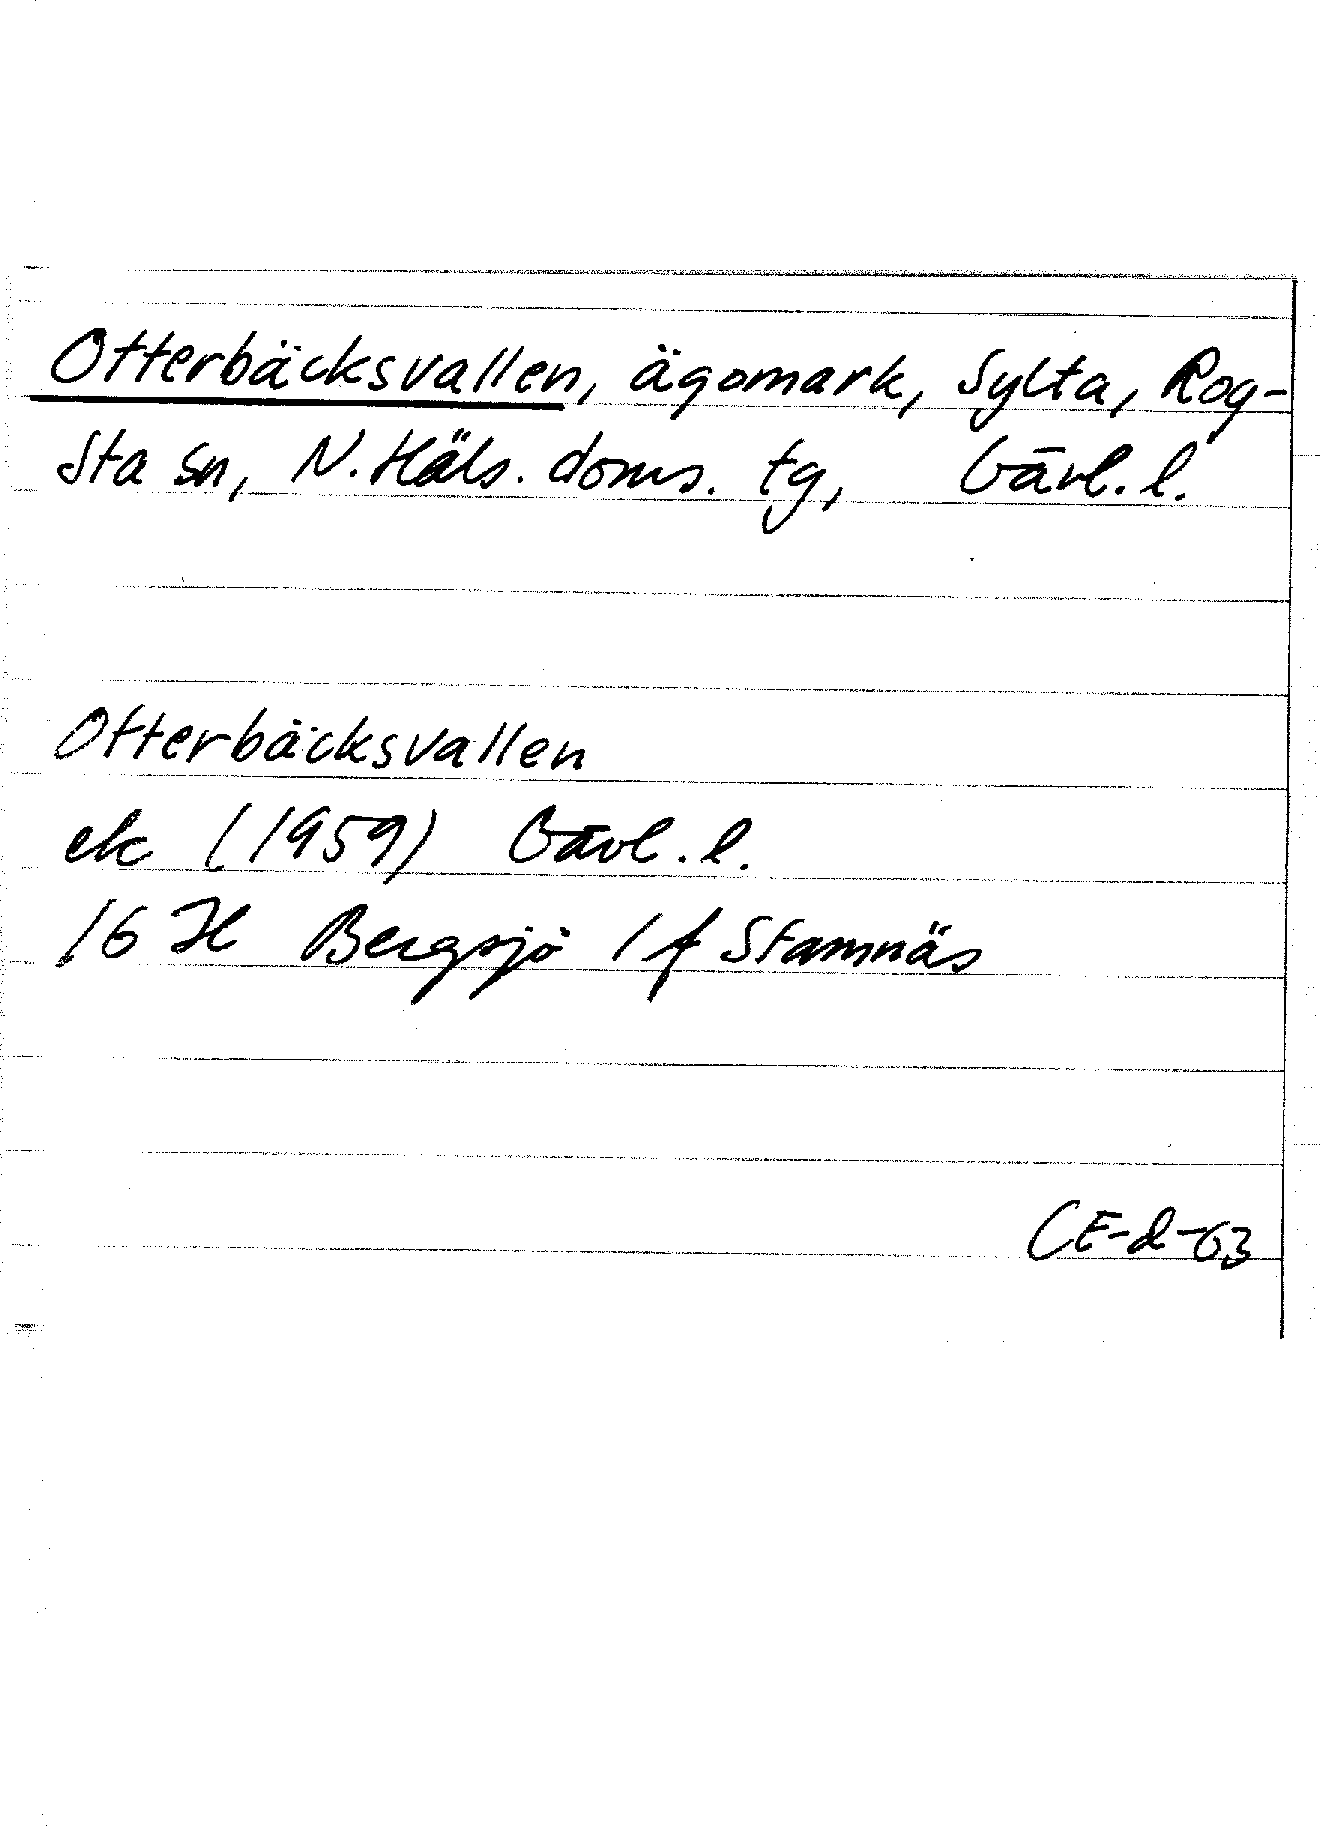 Otterbäcksvallen, ägomark, Sylta, Rog-
sta sn, N. Häls. doms. tg, Gävl. l.
Otterbäcksvallen
ek (1959) Gävl. l.
16 H Bergsjö 1 f Stamnäs
CE-d-63